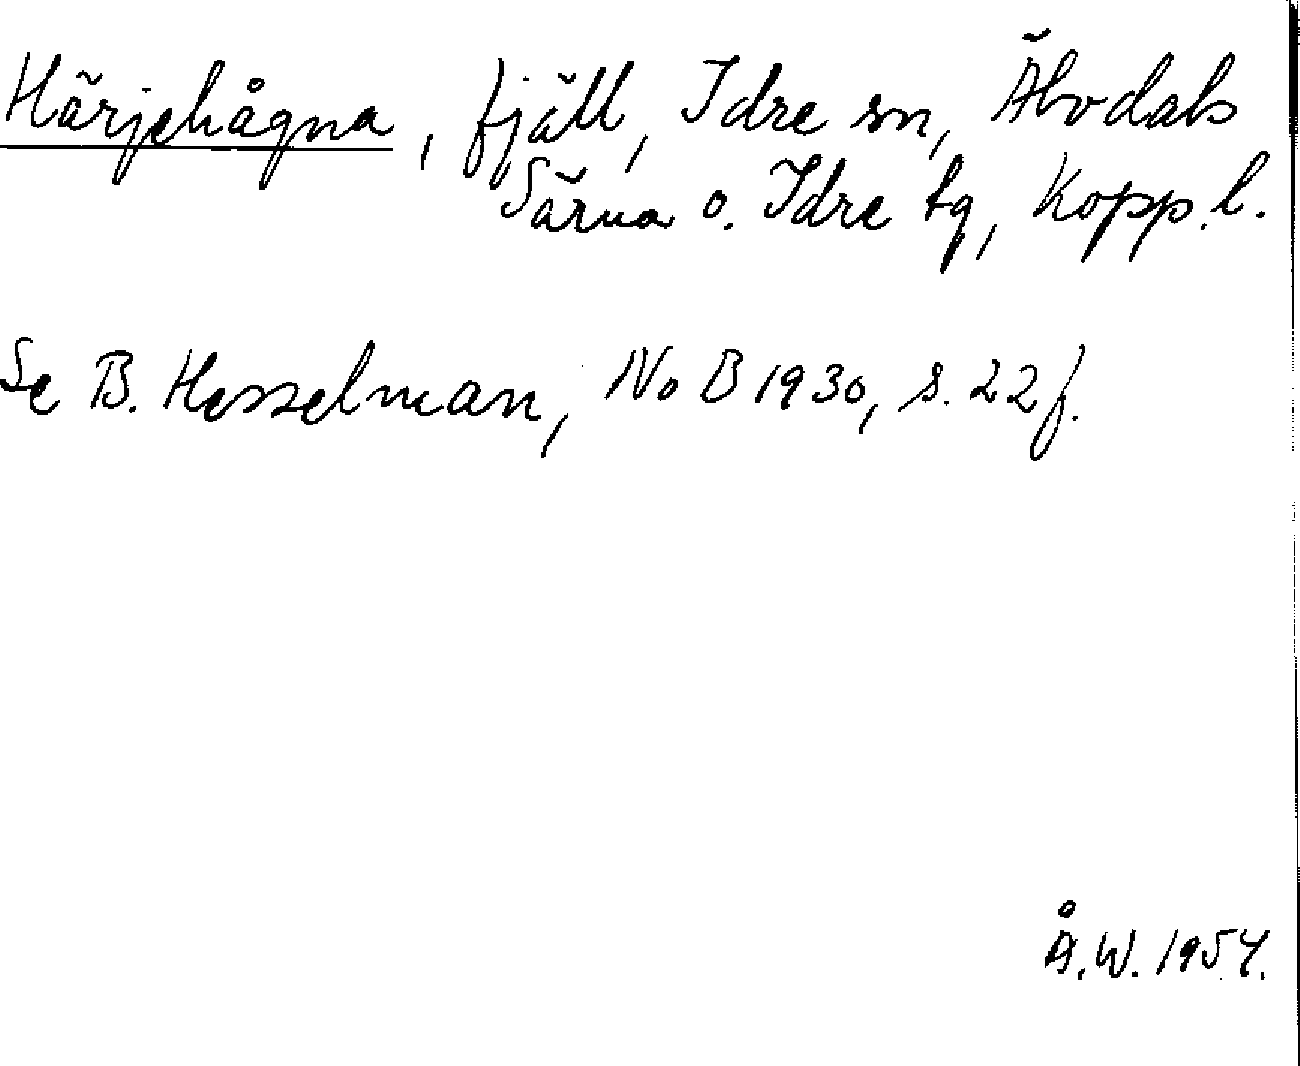 Härjehågna, fjäll, Idre sn, Älvdals
Särna o. Idre tg, Kopp.l.
Se B. Hesselman, NoB 1930, s. 22 f.
Å.W. 1954.